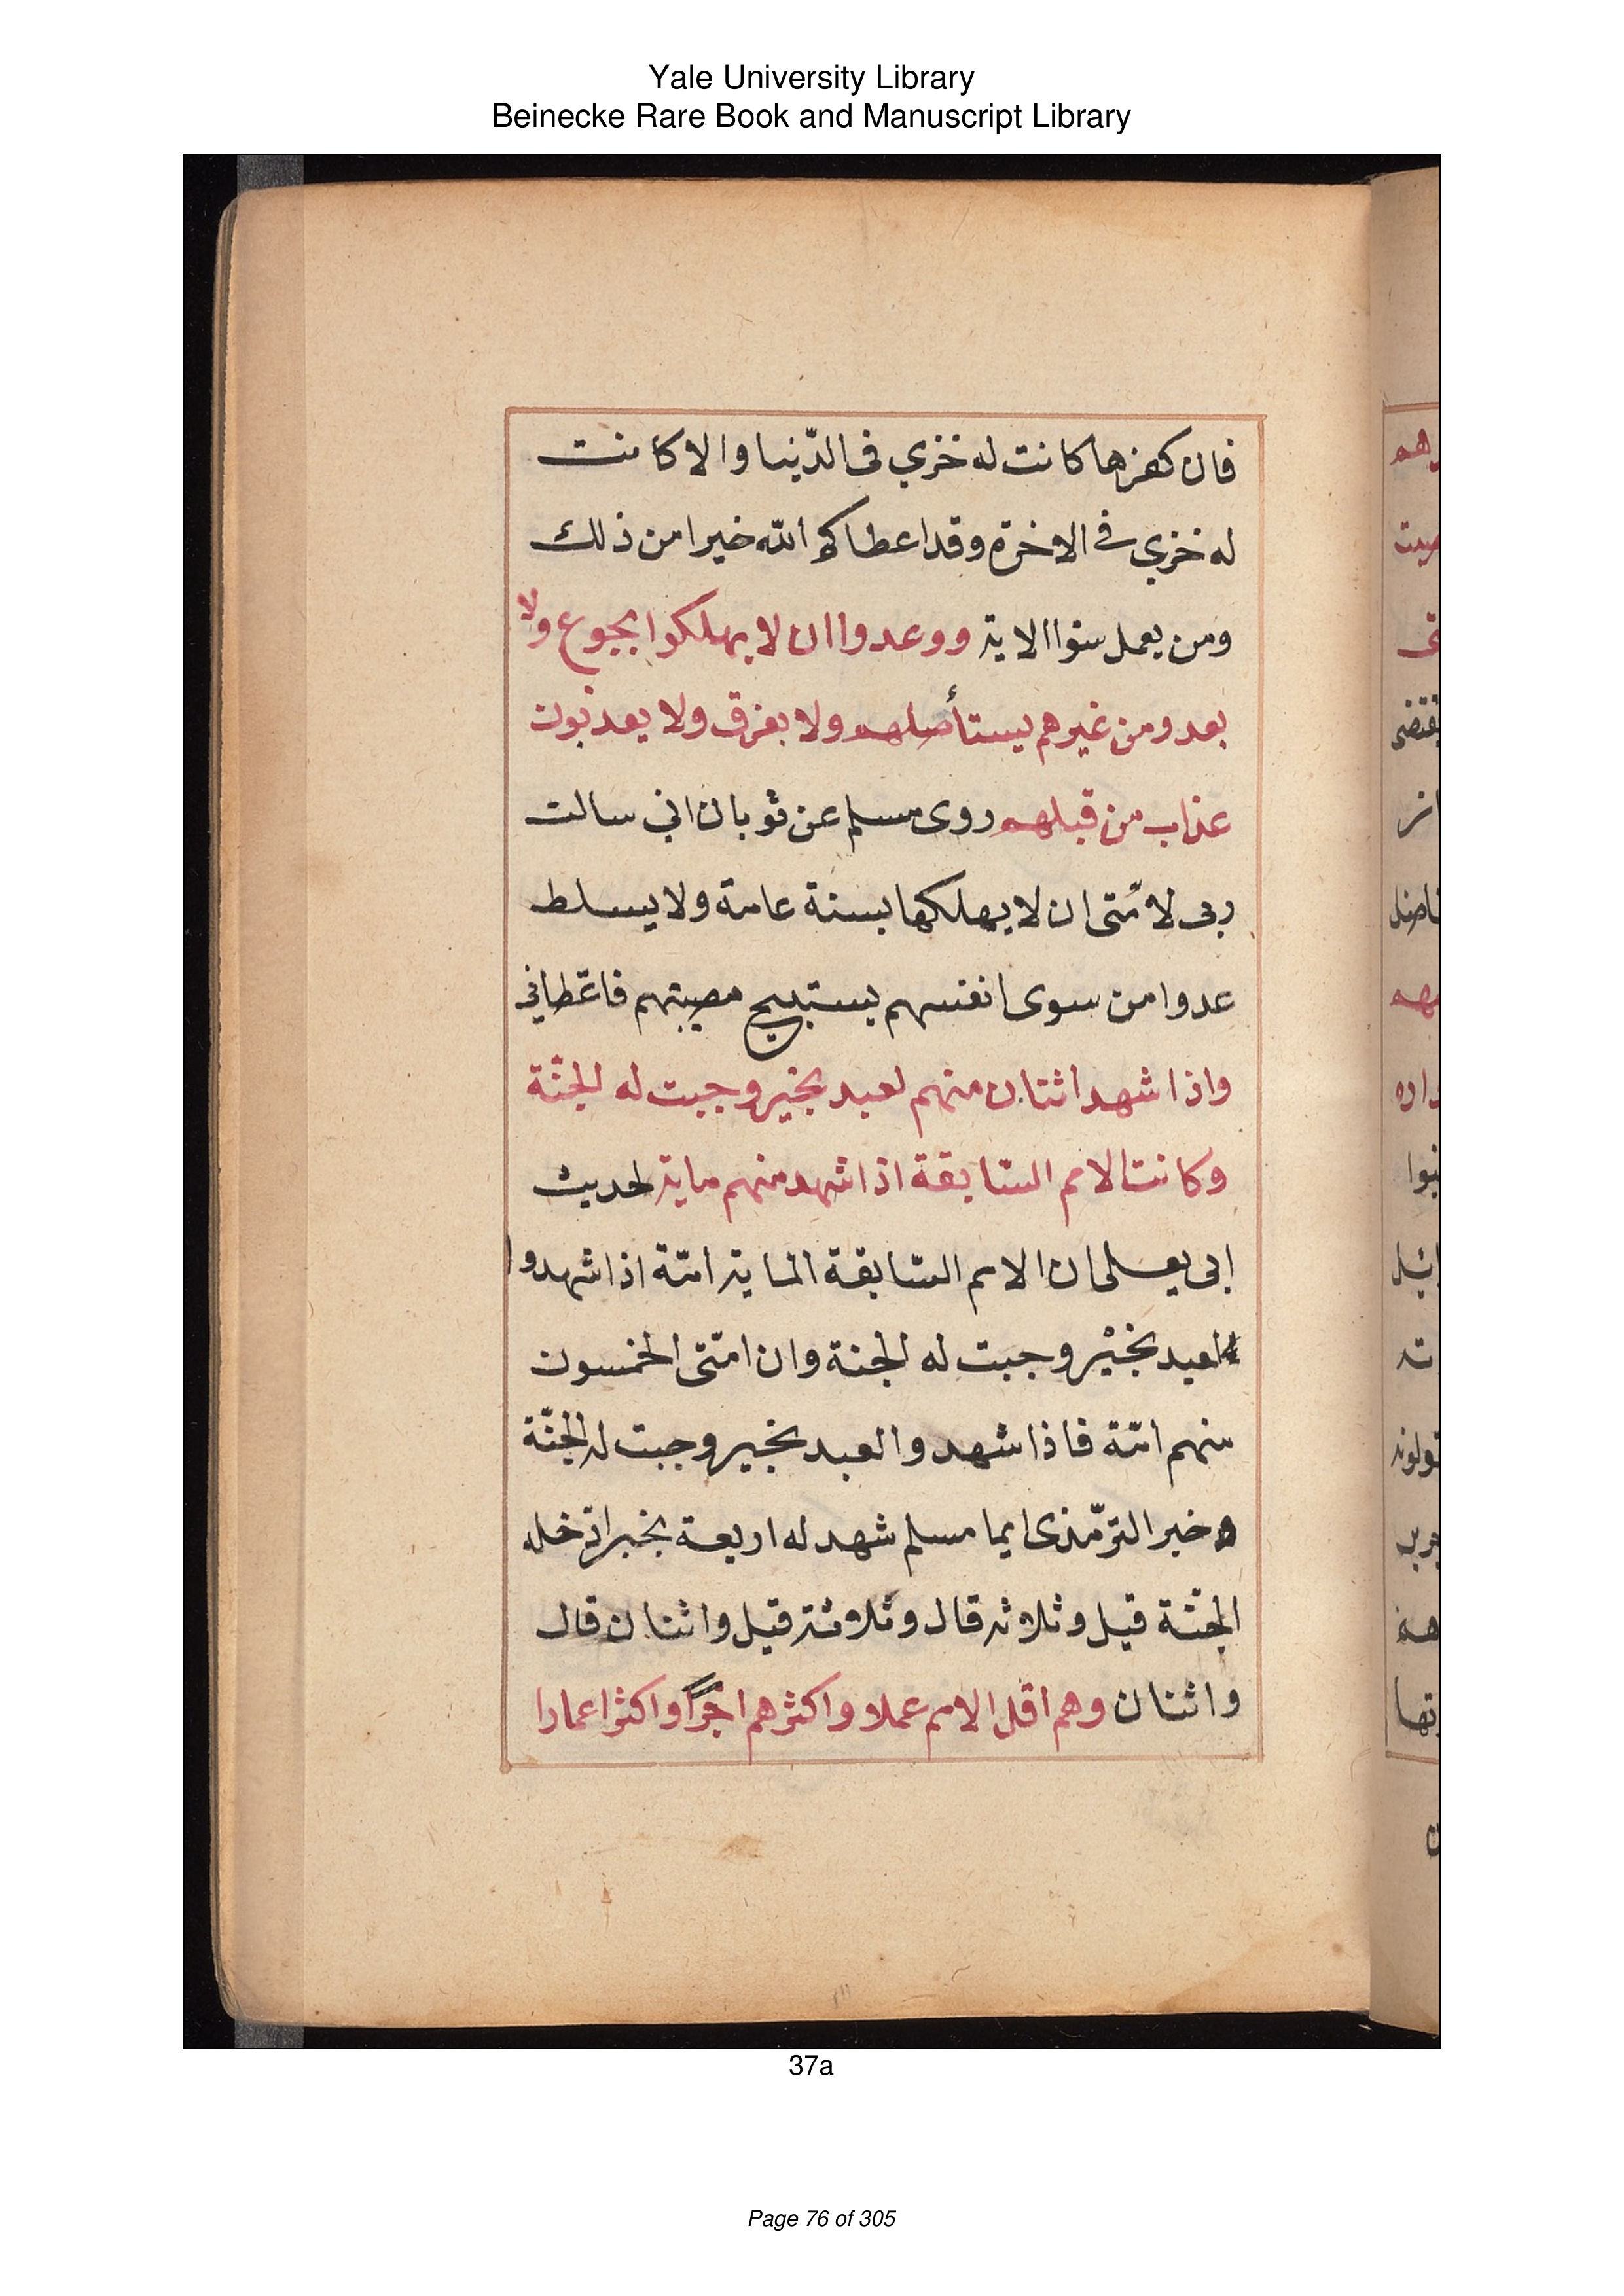 Yale University Library
Beinecke Rare Book and Manuscript Library
فان كفرها كانت له خزي فى الدّنيا والا كانت
له خزي في الاخرة وقد اعطاكم الله خيرا من ذلك
ومن يعمل سوا الاية ووعدوا ان لا يهلكوا بجوع ولا
بعدو من غيرهم يستأصلهم ولا بغرق ولا يعذبون
عذاب من قبلهم روى مسلم عن ثوبان اني سالت
ربى لامّتى ان لا يهلكها بسنة عامة ولا يسلط
عدوا من سوى انفسهم يستبيح فاعطاني
واذا شهد اثنان منهم لعبد بخير وجبت له الجنّة
وكانت الامم السّابقة اذا شهد منهم ماية لحديث
ابى يعلى ان الامم السّابقة الماية امّة اذا شهدوا
لعبد بخيْر وجبت له الجنة وان امّتى الخمسون
منهم امّة فاذا شهدوا لعبد بخير وجبت له الجنّة
وخبر الترّمذى ايما مسلم شهد له اربعة بخير ادخله
الجنّة قيل وثلاثه قال وثلاثة قيل واثنان قال
واثنان وهم اقل الامم عملا واكثرهم اجرًا واكثر اعمارا
رهم
يقتضى
تولونه
37a
Page 76 of 305